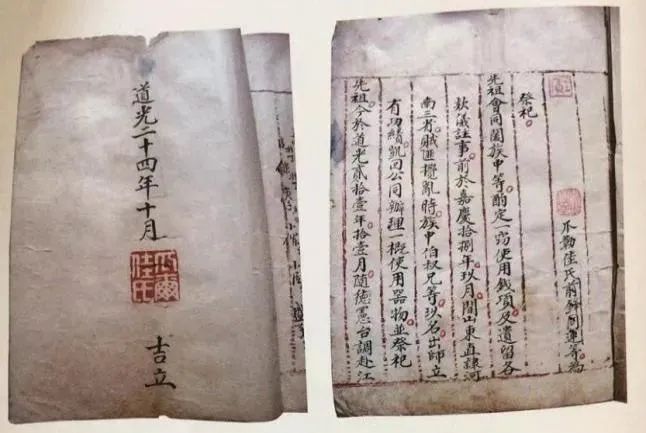 道光二十四年十月
瓜爾佳氏
吉立
爪勒佳氏前鋒阿連等為
祭祀
先祖會同闔族中等酌定一切使用錢項及遺留各
款儀註事前於嘉慶拾捌年玖月間山東直隸河
南三省賊匪擾亂時族中伯叔兄等玖名出師立
有功績凱回公同辦理一概使用器物並祭祀
先祖今於道光貳拾壹年拾壹月隨德憲台調赴江